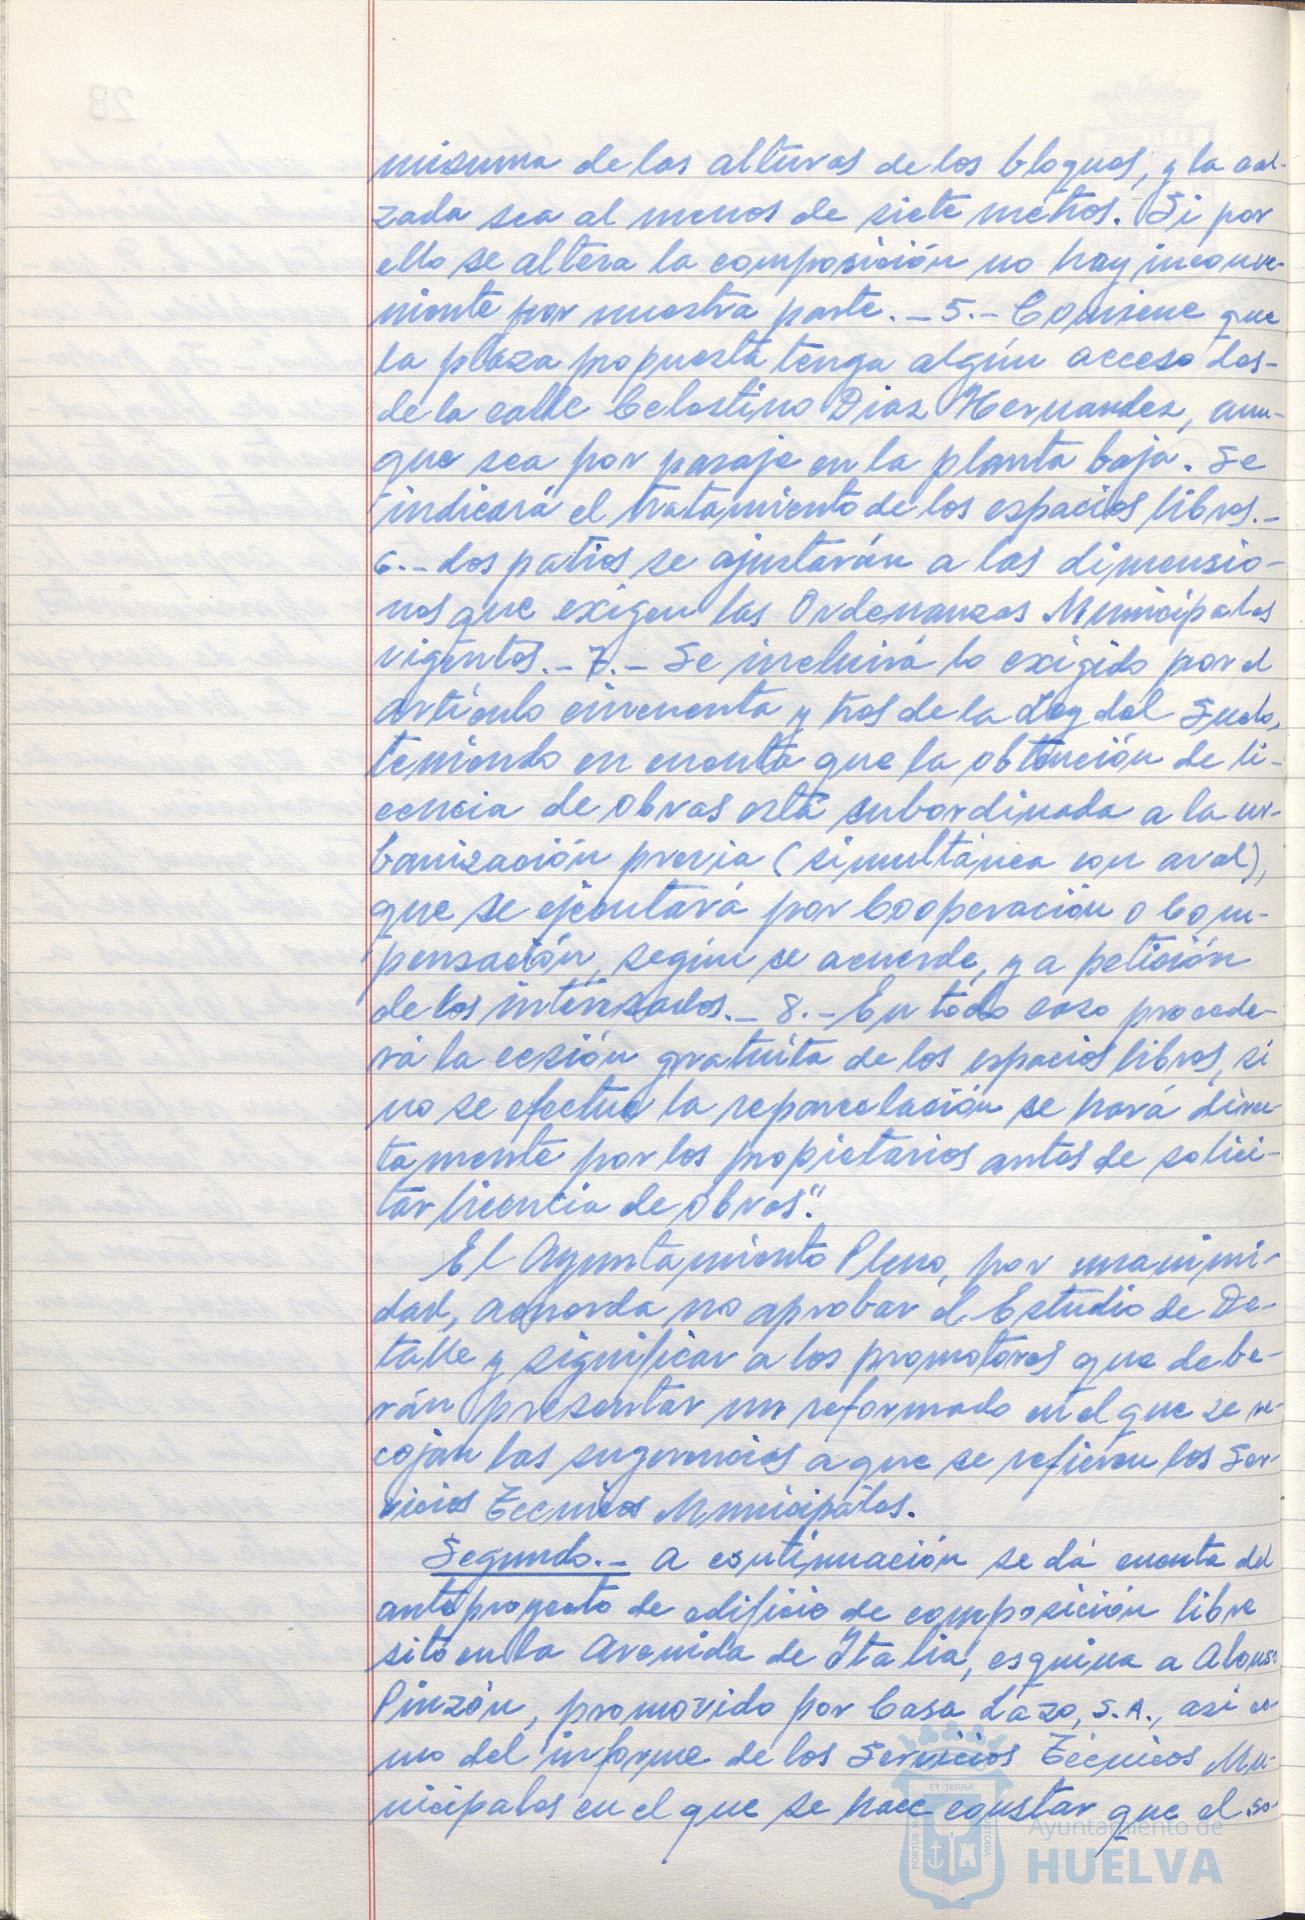 misma de las alturas de los bloques, y la cal-
zada sea al menos de siete metros. Si por
ello se altera la composición no hay inconve-
niente por nuestra parte. _ 5.- Conviene que
la plaza propuesta tenga algún acceso des-
de la calle Celestino Diaz Hernandez, aun-
que sea por pasaje en la planta baja. Se
indicará el tratamiento de los espacios libres._
6.- Los patios se ajustarán a las dimensio-
nes que exigen las Ordenanzas Municipales
vigentes. _ 7.- Se incluirá lo exigido por el
artículo cincuenta y tres de la Ley del Suelo,
teniendo en cuenta que la obtención de li-
cencia de obras está subordinada a la ur-
banización previa (simultánea con aval),
que se ejecutará por Cooperación o Com-
pensación, según se acuerde, y a petición
de los interesados. _ 8.- En todo caso procede-
rá la cesión gratuita de los espacios libres, si
no se efectua la reparcelación se hará direc-
tamente por los propietarios antes de solici-
tar licencia de obras".
El Ayuntamiento Pleno, por unanimi-
dad, acuerda no aprobar el Estudio de De-
talle y significar a los promotores que debe-
rán presentar un reformado en el que se re-
cojan las sugerencias a que se refieren los Ser-
vicios Tecnicos Municipales.
Segundo.- A continuación se dá cuenta del
anteproyecto de edificio de composición libre
sito en la Avenida de Italia, esquina a Alonso
Pinzón, promovido por Casa Lazo, S.A., asi co-
mo del informe de los Servicios Técnicos Mu-
nicipales en el que se hace constar que el so-
ET TERRÆ
PORTUS
CUSTODIA
Ayuntamiento de
HUELVA